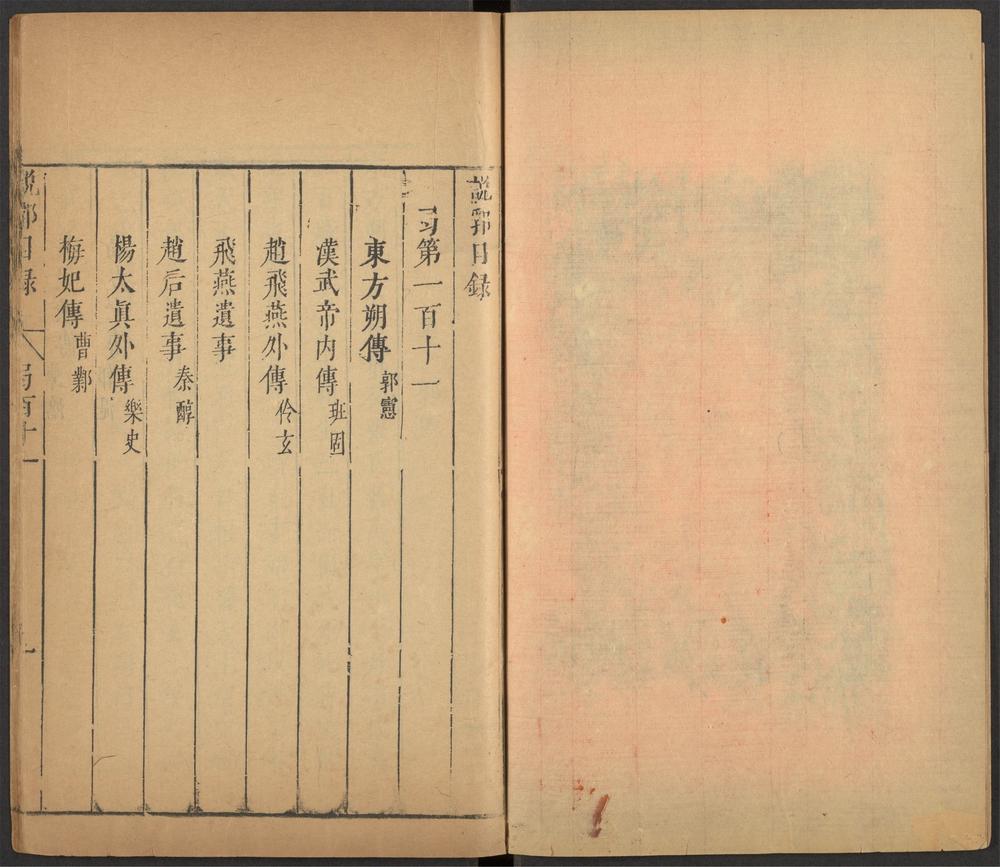 說郛目錄
弓第一百十一
東方朔傳 郭憲
漢武帝內傳 班固
趙飛燕外傳 伶玄
飛燕遺事
趙后遺事 秦醇
楊太眞外傳 樂史
梅妃傳 曹鄴
說郛目錄 弓百十一 一